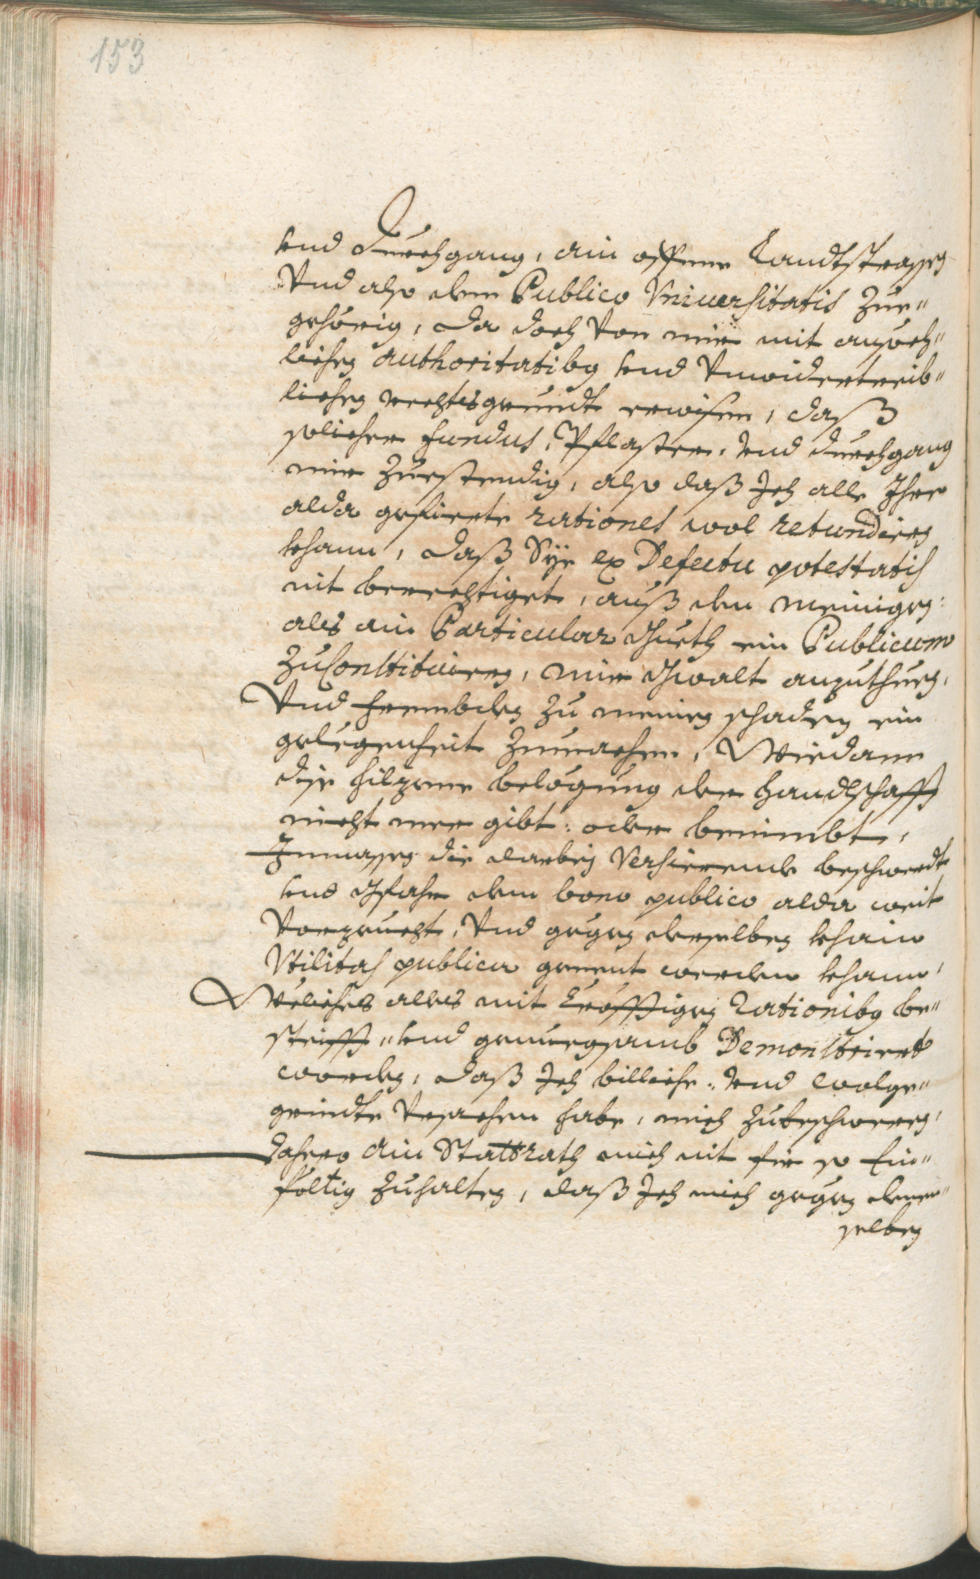 153
und Durchgang, ain offene Landtstrassen
Vnd also dem Publico Vniuersitatis Zue„
gehörig, da doch Von mir mit ansech„
lichen authoritatibus und Vnwidertreib„
lichen rechtsgrundt erwisen, daß
solicher fundus, Pflaster, und durchgang
mir Zuestendig, also daß Ich alle Ihre
alda gefierte rationes wol retundiren
khann, daß Sye ex Defectu potestatis
nit berechtiget, auß dem meinigen
als ain Particular Gueth ein Publicum
Zu Constituiren, mir Gwalt anzuthuen,
Vnd frembden zu meinen schaden ein
gelegenheit Zumachen, Wie dann
die hilzene belögung der handtschafft
nicht mer gibt: oder benimbt,
Inmassen die darbej Versierende beschwerdt
und Gfahr dem bono publico alda weit
Vorzeucht, Vnd gegen derselben khain
Vtilitas publica genent werden khann,
Weliches alles mit kröfftigen rationibus be„
steifft, und genuegsamb Demonstriert
worden, daß Ich billiche und wolge„
grindte Vrsachen habe, mich Zubeschweren,
dahero ain Stattrath mich nit fir so Ein„
föltig Zuhalten, daß Ich mich gegen dem„
selben